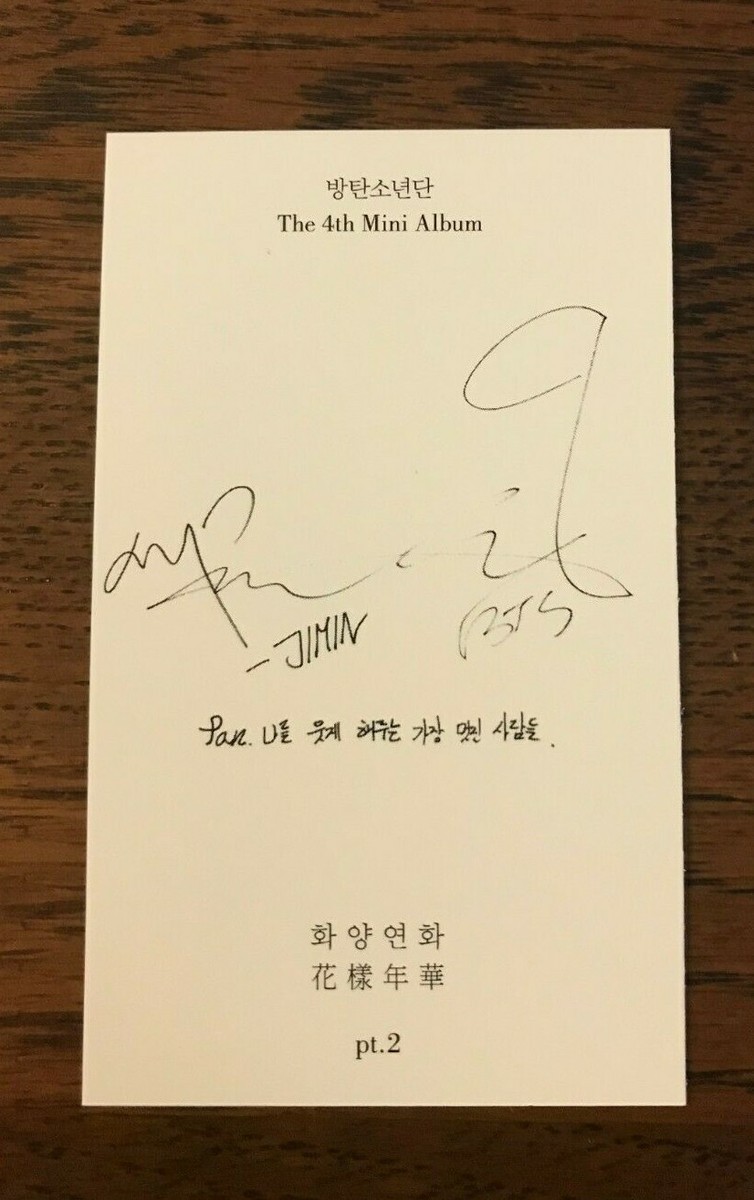 방탄소년단
The 4th Mini Album
- JIMIN
BTS
Fan. 나를 웃게 해주는 가장 멋진 사람들.
화양연화
花樣年華
pt.2